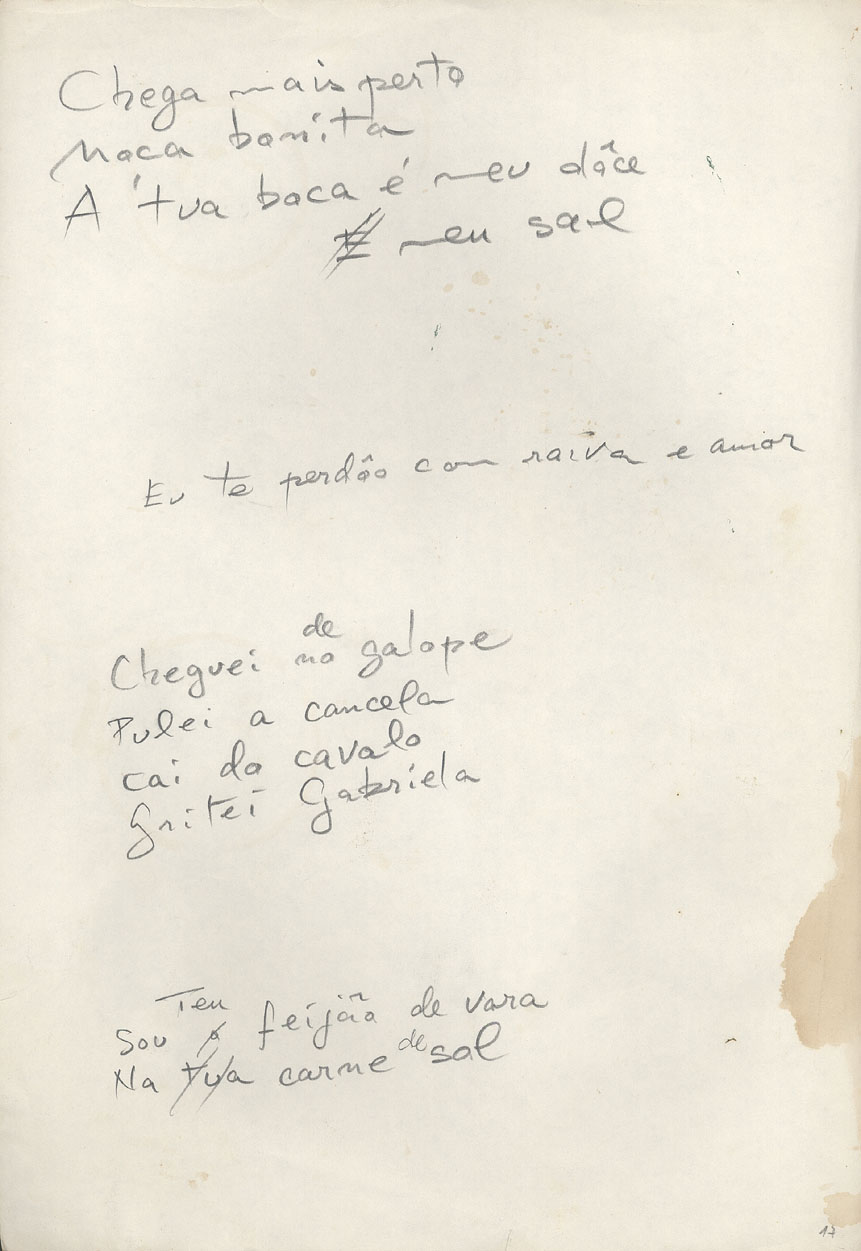 Chega mais perto
Moca bonita
A tua boca é meu dôce
E meu sal
Eu te perdôo com raiva e amor
de
Cheguei no galope
Pulei a cancela
cai do cavalo
Gritei Gabriela
Teu
Sou o feijão de vara
Na tua carne de sal
17